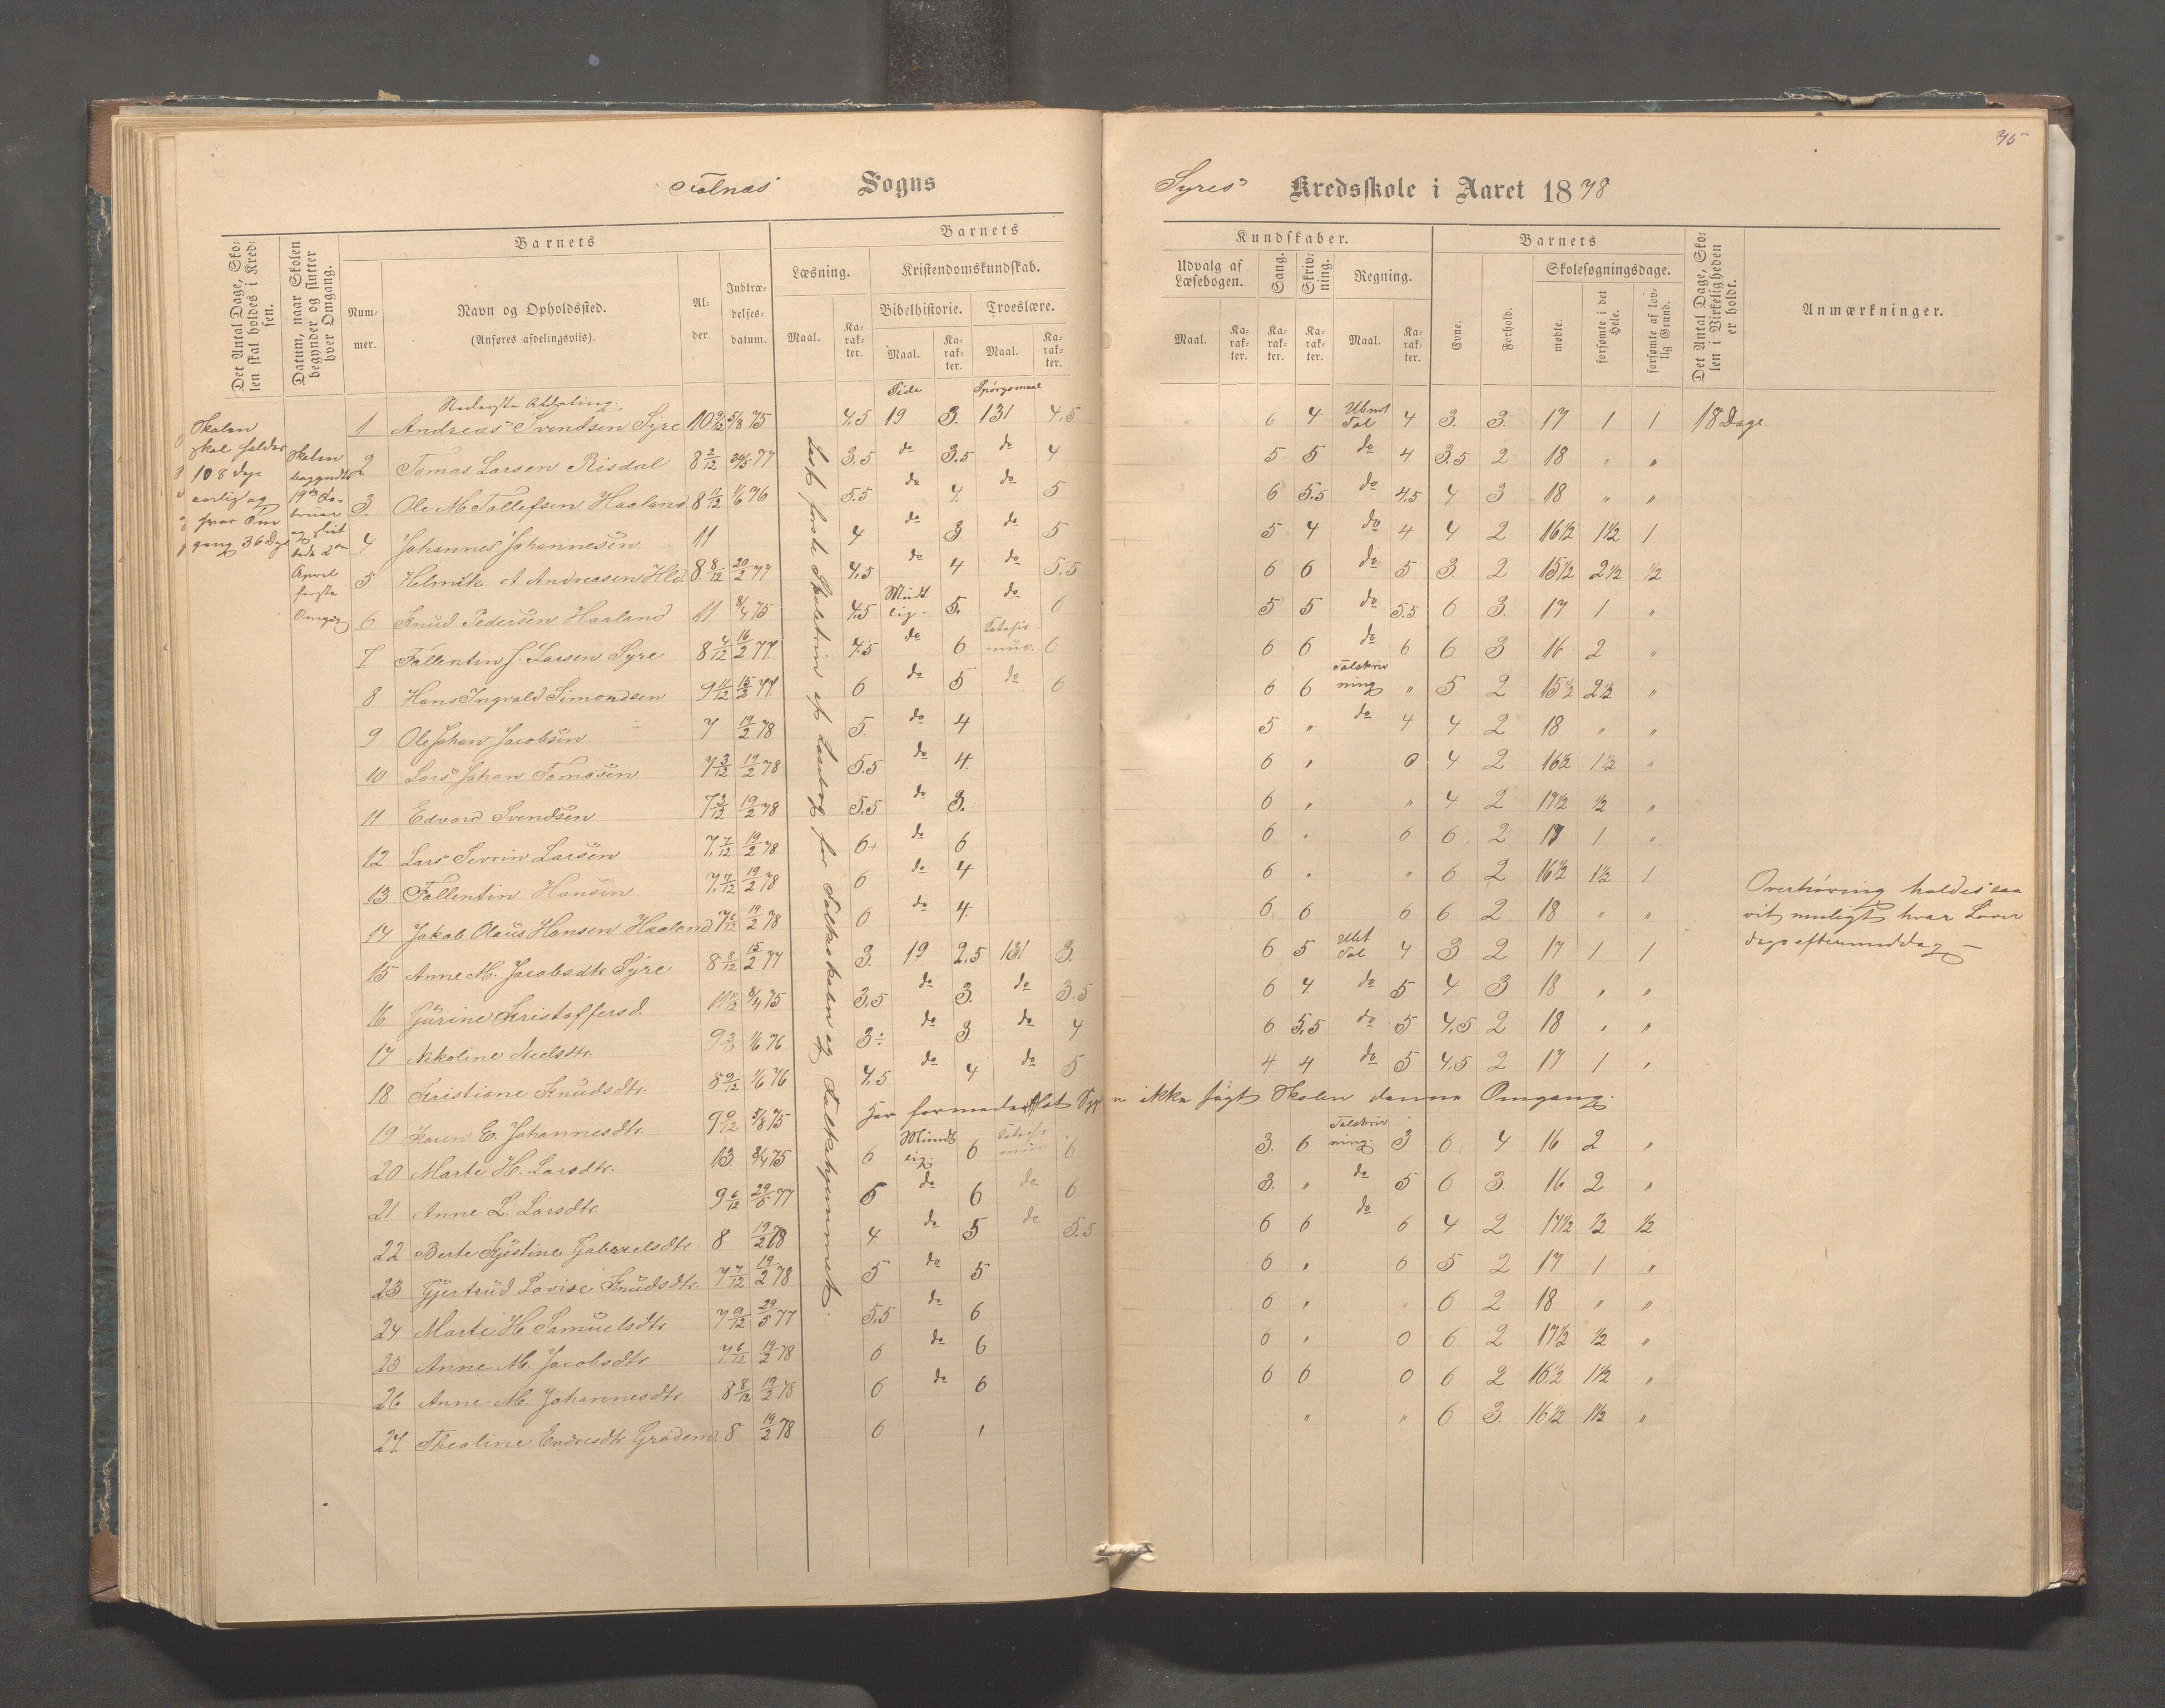 75
Falnæs Sogns
Syres Kredsskole i Aaret 1878
Det Antal Dage, Skolen skal holdes i Kredsen.
Datum, naar Skolen begynder og slutter hver Omgang.
Barnets
Nummer.
Navn og Opholdssted.
(Anføres afdelingsviis).
Alder.
Indtrædelsesdatum.
Barnets
Læsning.
Kristendomskundskab.
Bibelhistorie.
Troeslære.
Maal.
Karakter.
Maal.
Karakter.
Maal.
Karakter.
Kundskaber.
Udvalg af Læsebogen.
Sang.
Skrivning.
Regning.
Maal.
Karakter.
Karakter.
Karakter.
Maal.
Karakter.
Barnets
Evne.
Forhold.
Skolesøgningsdage.
mødte.
forsømte i det Hele.
forsømte af lovlig Grund.
Det Antal Dage, Skolen i Virkeligheden er holdt.
Anmærkninger.
Skolen
skal holdes
108 dage
aarlig og
hver Om
gang 36 Dage
Skolen
begyndte
19de Fe-
bruar
og slut
tede 2den
April
første
Omgang
Nederste Afdeling.
Side
Spørgsmaal
Læst første Skoletrin af Læsebog for Folkeskolen og Folkehjemmet.
1 Andreas Svendsen Syre 10 9/12 5/8 75 4,5 19 3. 131 4,5 6 4 Ubnt Tal 4 3. 3. 17 1 1 18 Dage.
2 Tomas Larsen Risdal 8 2/12 29/5 77 3,5 do 3.5 do 4 5 5 do 4 3.5 2 18 " "
3. Ole M Tollefsen Haaland 8 11/12 1/6 76 5.5 do 4. do 5 6 5.5 do 4,5 4 3 18 " "
4 Johannes Johannesen 11 4 do 3. do 5 5 4 do 4 4 2 16½ 1½ 1
5 Helmik A Andreasen Hld. 8 8/12 20/2 77 4,5 do 4 do 5.5 6 6 do 5 3. 2 15½ 2½ ½
6 Knud Pedersen Haaland 11 8/4 75 4,5 Mundt lig. 5. do 6 5 5 do 5.5 6 3. 17 1 "
7 Fallentin J. Larsen Syre 8 4/12 16/2 77 4.5 do 6 Katekis mus. 6 6 6 do 6 6 3 16 2 "
8 Hans Ingvald Simondsen 9 11/12 15/2 77. 6 do 5 do 6 6 6 Talskriv ning " 5 2 15½ 2½ "
9 Ole Johan Jacobsen 7 19/2 78 5. do 4 5 " do 4 4 2 18 " "
10 Lars Johan Tomasen 7 3/12 19/2 78 5.5 do 4. 6 " 0 4 2 16½ 1½ "
11 Edvard Svendsen 7 3/12 19/2 78 5.5 do 3. 6 " " 4 2 17½ ½ "
12 Lars Sevrin Larsen 7 7/12 19/2 78 6+ do 6 6 " 6 6 2 17 1 "
13 Fallentin Hansen 7 7/12 19/2 78 6 do 4 6 " " 6 2 16½ 1½ 1
14 Jakob Olaus Hansen Haaland 7 6/12 19/2 78 6 do 4. 6 6 6 6 2 18 " "
15 Anne M. Jacobsdtr Syre 8 8/12 15/2 77 3. 19 2,5 131 3. 6 5 Ubt Tal 4 3 2 17 1 1
16 Gurine Kristoffersd. 11 8/4 75 3,5 do 3. do 3.5 6 4. do 5 4 3 18 " "
17 Nikoline Nielsdtr. 9 1/6 76 3÷ do 3 do 4 6 5.5 do 5 4,5 2 18 " "
18 Kristiane Knudsdtr. 8 9/12 1/6 76 4,5 do 4 do 5 4 4 do 5 4.5 2 17 1 "
19 Karen E. Johannesdtr. 9 9/12 5/8 75 Har formedelst ikke søgt Skolen denne Omgang.
20 Marte H. Larsdtr. 13. 8/4 75 6 Mundt lig. 6 Katekis mus 6 3. 6 Talskriv ning. 3 6 4 16 2 "
21 Anne L. Larsdtr. 9 6/12 29/5 77 6 do 6 do 6 3. " do 5 6 3. 16 2 "
22 Berte Kjistine Gabrielsdtr 8 19/2 78 4 do 5 do 5.5 6 6 do 6 4 2 17½ ½ ½
23 Gjertrud Lovise Knudsdtr. 7 7/12 19/2 78 5 do 5 6 " 6 5 2 17 1 "
24 Marte H Samuelsdtr 7 9/12 29/5 77 5,5 do 6 6 " " 6 2 18 " "
25 Anne M. Jacobsdtr 7 6/12 19/2 78 6 do 6 6 " 0 6 2 17½ ½ "
26 Anne M. Johannesdtr 8 8/12 19/2 78 6 do 6 6 6 0 6 2 16½ 1½ "
27. Thealine Endresdtr 8 19/2 78 6 " " 6 3. 16½ 1½ "
Overhøring holdes saa
vit muligt hver Løver
dags eftermiddag –